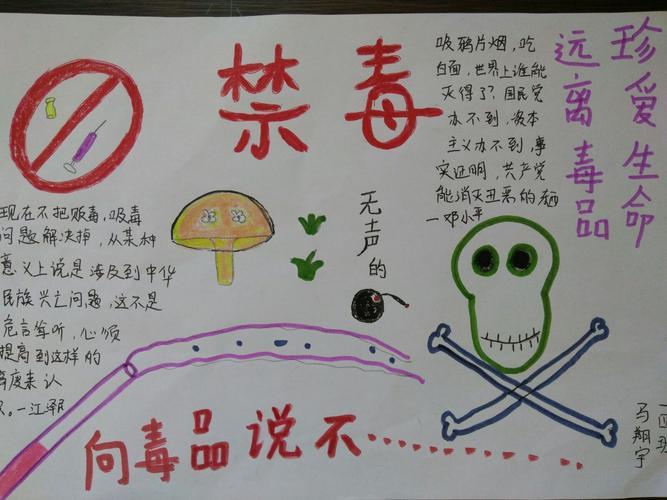 禁毒
吸鸦片烟，吃
白面，世界上谁能
灭得了？国民党
办不到，资本
主义办不到，事
实证明，共产党
能消灭丑恶的东西
—邓小平
珍爱生命
远离毒品
现在不把贩毒，吸毒
问题解决掉，从某种
意义上说是涉及到中华
民族兴亡问题，这不是
危言耸听，心须
提高到这样的
高度来认
—江泽民
无声的
向毒品说不……
马翔宇